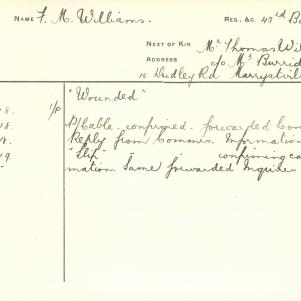 NAME F. M. Williams. REG., &C. 43rd Ba
NEXT OF KIN Mr Thomas Wil
ADDRESS c/o Mr Burrid
15. Dudley Rd Marryatvil
"Wounded"
8. 1/p P/Cable confirmed forwarded Com
18. Reply from Commrs. Information
"Slip" confirming ca
19. mation. Same forwarded Inquires